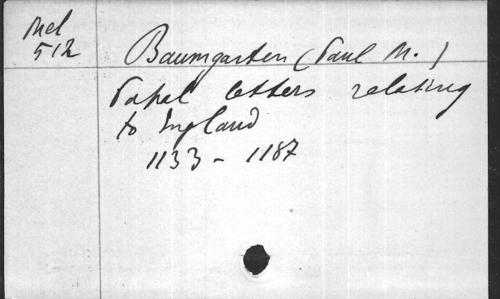 Mel
512
Baumgarten (Paul M.)
Papal letters relating
to England
1133 - 1187